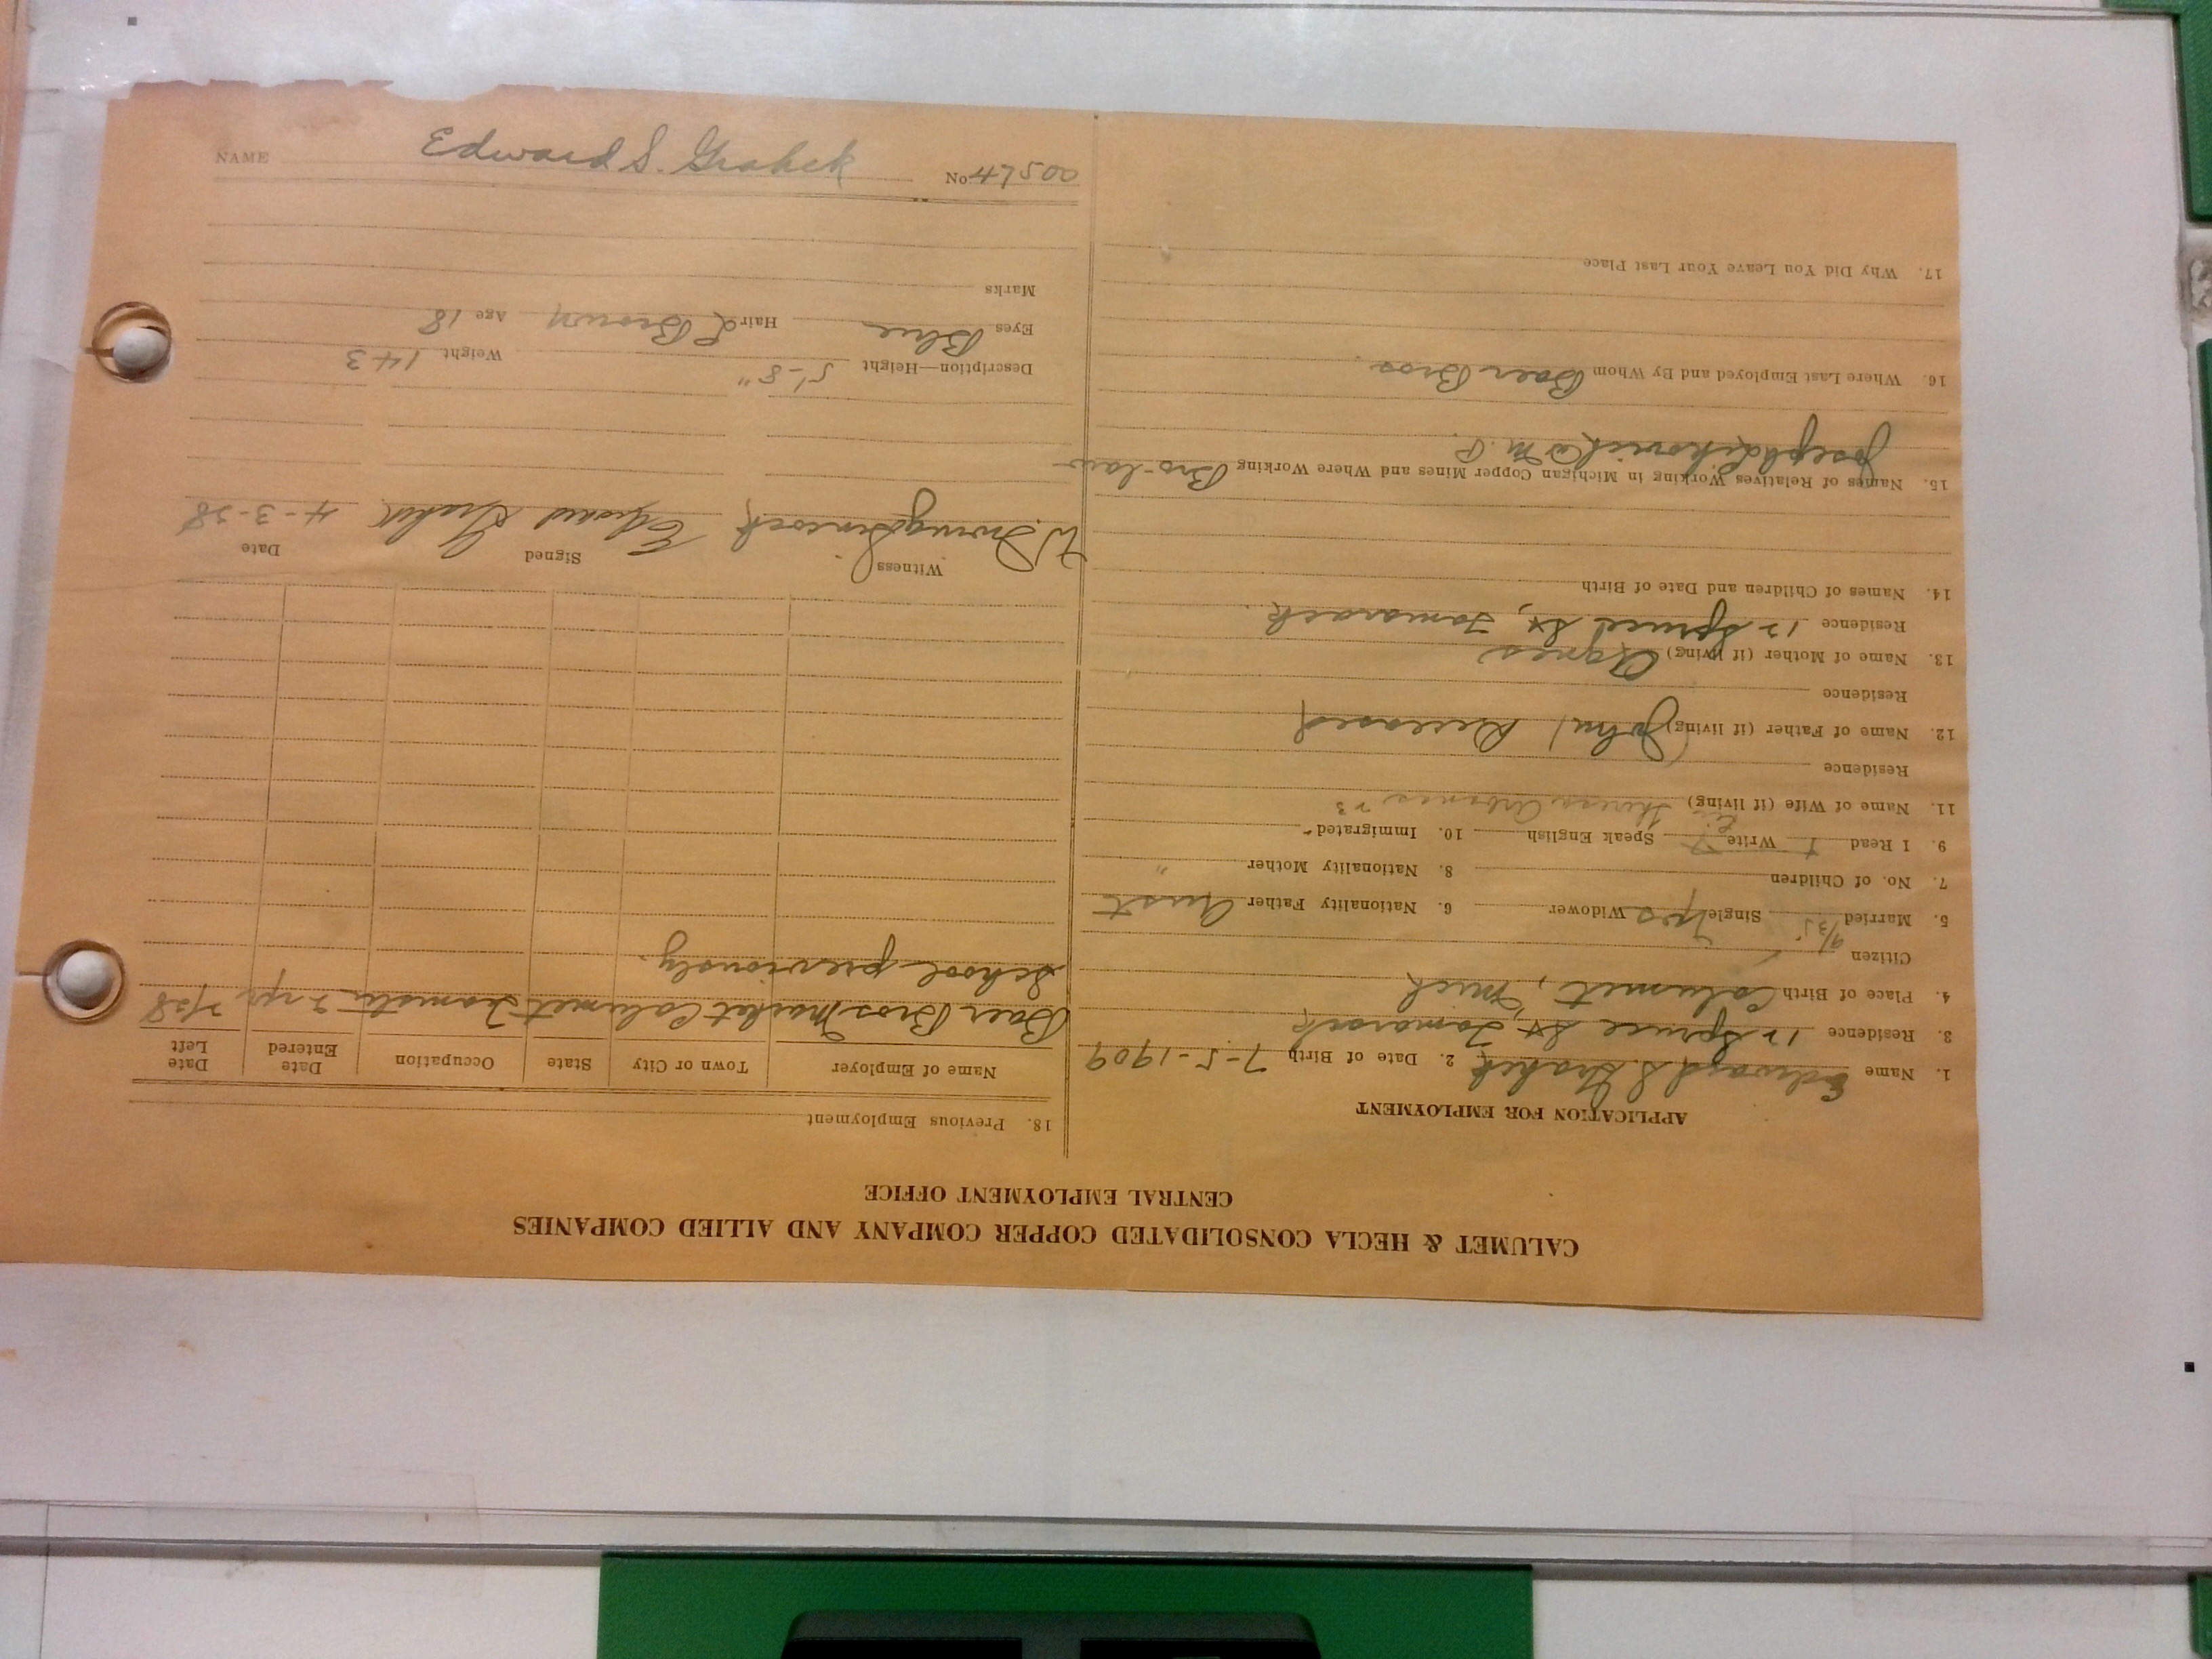 CALUMET & HECLA CONSOLIDATED COPPER COMPANY AND ALLIED COMPANIES
CENTRAL EMPLOYMENT OFFICE
APPLICATION FOR EMPLOYMENT
1. Name Edward S. Grahek 2. Date of Birth 7-5-1909
3. Residence 12 Spruce St, Tamarack
4. Place of Birth Calumet, Mich
Citizen
5. Married 9/35 Single Yes Widower 6. Nationality Father Aust
7. No. of Children 8. Nationality Mother "
9. I Read Write Speak English 10. Immigrated
11. Name of Wife (if living) Theresa 23
Residence
12. Name of Father (if living) (John) Deceased
Residence
13. Name of Mother (if living) Agnes
Residence 12 Spruce St, Tamarack.
14. Names of Children and Date of Birth
15. Names of Relatives Working in Michigan Copper Mines and Where Working Bro-law
Joseph M. P.
16. Where Last Employed and By Whom Baer Bros.
17. Why Did You Leave Your Last Place
18. Previous Employment
Name of Employer Town or City State Occupation Date Entered Date Left
Baer Bros Market Calumet Teamster 2 yrs 2/28
School previously.
Witness Signed Date
W. Irving Edward Grahek 4-3-28
Description—Height 5'-8" Weight 143
Eyes Blue Hair L Brown Age 18
Marks
NAME Edward S. Grahek No 47500